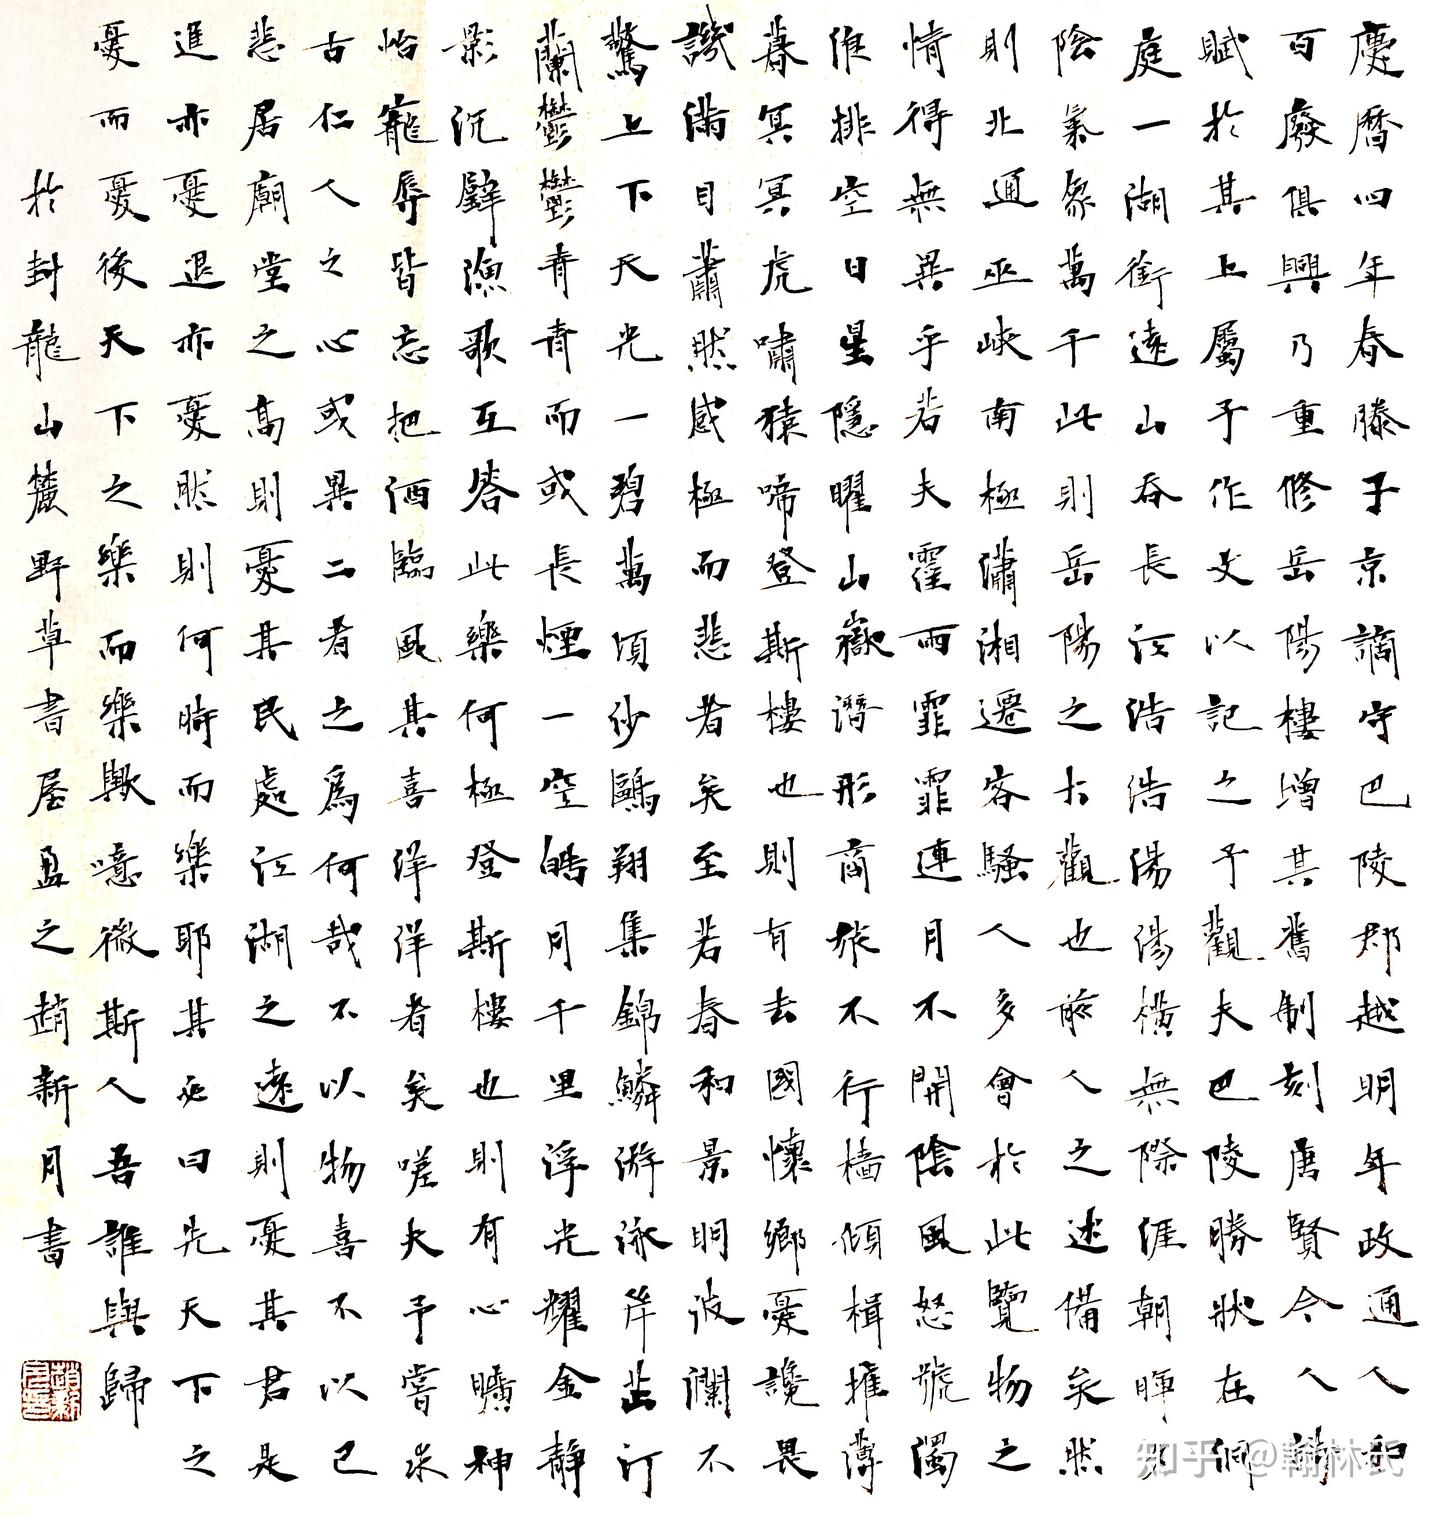 慶曆四年春滕子京謫守巴陵郡越明年政通人和
百廢俱興乃重修岳陽樓增其舊制刻唐賢今人詩
賦於其上屬予作文以記之予觀夫巴陵勝狀在洞
庭一湖銜遠山吞長江浩浩湯湯橫無際涯朝暉夕
陰氣象萬千此則岳陽之大觀也前人之述備矣然
則北通巫峽南極瀟湘遷客騷人多會於此覽物之
情得無異乎若夫霪雨霏霏連月不開陰風怒號濁
浪排空日星隱曜山嶽潛形商旅不行檣傾楫摧薄
暮冥冥虎嘯猿啼登斯樓也則有去國懷鄉憂讒畏
譏滿目蕭然感極而悲者矣至若春和景明波瀾不
驚上下天光一碧萬頃沙鷗翔集錦鱗游泳岸芷汀
蘭鬱鬱青青而或長煙一空皓月千里浮光耀金靜
影沉璧漁歌互答此樂何極登斯樓也則有心曠神
怡寵辱皆忘把酒臨風其喜洋洋者矣嗟夫予嘗求
古仁人之心或異二者之為何哉不以物喜不以己
悲居廟堂之高則憂其民處江湖之遠則憂其君是
進亦憂退亦憂然則何時而樂耶其必曰先天下之
憂而憂後天下之樂而樂歟噫微斯人吾誰與歸
於封龍山麓野草書屋盈之趙新月書
知乎 @翰林氏